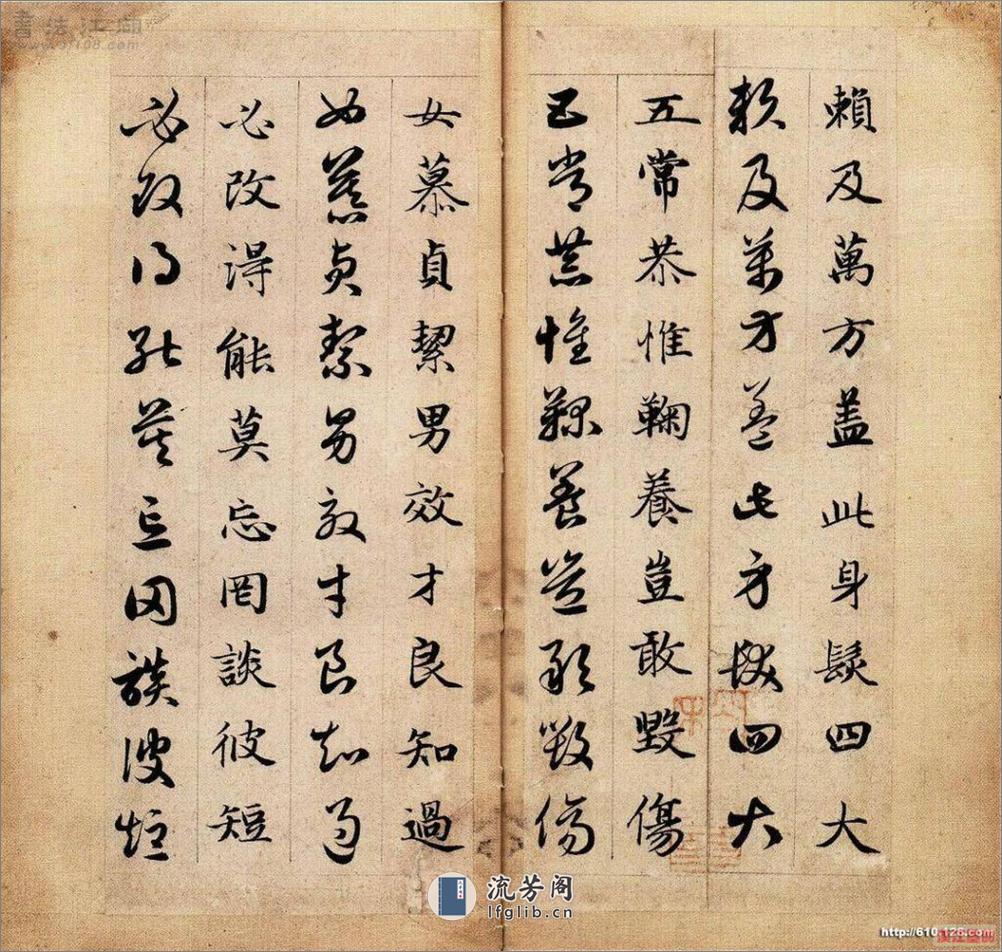 賴及萬方盖此身髮四大
賴及萬方盖此身髮四大
五常恭惟鞠養豈敢毀傷
五常恭惟鞠養豈敢毀傷
女慕貞絜男效才良知過
女慕貞絜男效才良知過
必改得能莫忘罔談彼短
必改得能莫忘罔談彼短
書法江湖
流芳阁
lfglib.cn